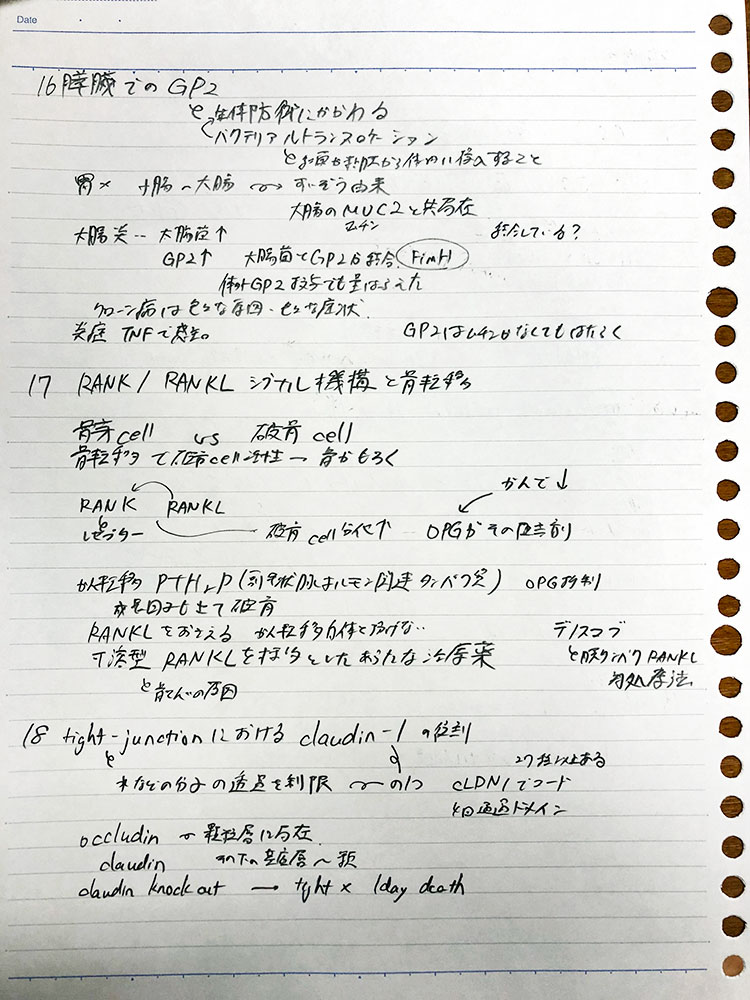 Date
16 膵臓でのGP2
と 生体防御にかかわる
バクテリアルトランスロケーション
と お腹の
胃× 小腸〜大腸 〜→ すいぞう由来
大腸のMUC2と共局在
ムチン
大腸炎‥ 大腸菌↑ 結合している?
GP2↑ 大腸菌とGP2が結合 FimH
体外GP2投与でも
クローン病は色々な原因・色々な症状
炎症 TNFで GP2はムチンがなくてもはたらく
17 RANK / RANKL シグナル機構と骨転移
骨芽cell vs 破骨cell
骨転移で破骨cell活性 → 骨がもろく
RANK RANKL かんで↓
レセプター 破骨cell分化↑ OPGがその阻害剤
がん転移 PTHrP (副甲状腺ホルモン関連タンパク質) OPG抑制
成長因子も出て破骨
RANKLをおさえる がん転移自体を防げない‥ デノスマブ
可溶型RANKLを標的としたあらたな治療薬 と 抗 RANKL
と 骨 の原因 療法
18 tight-junctionにおける claudin-1 の役割
と 27種以上ある
水などの分子の透過を制限 〜の1つ CLDN1でコード
4回 ドメイン
occludin → 顆粒層に局在
claudin その下の基底層〜顆
claudin knock out → tight × 1day death